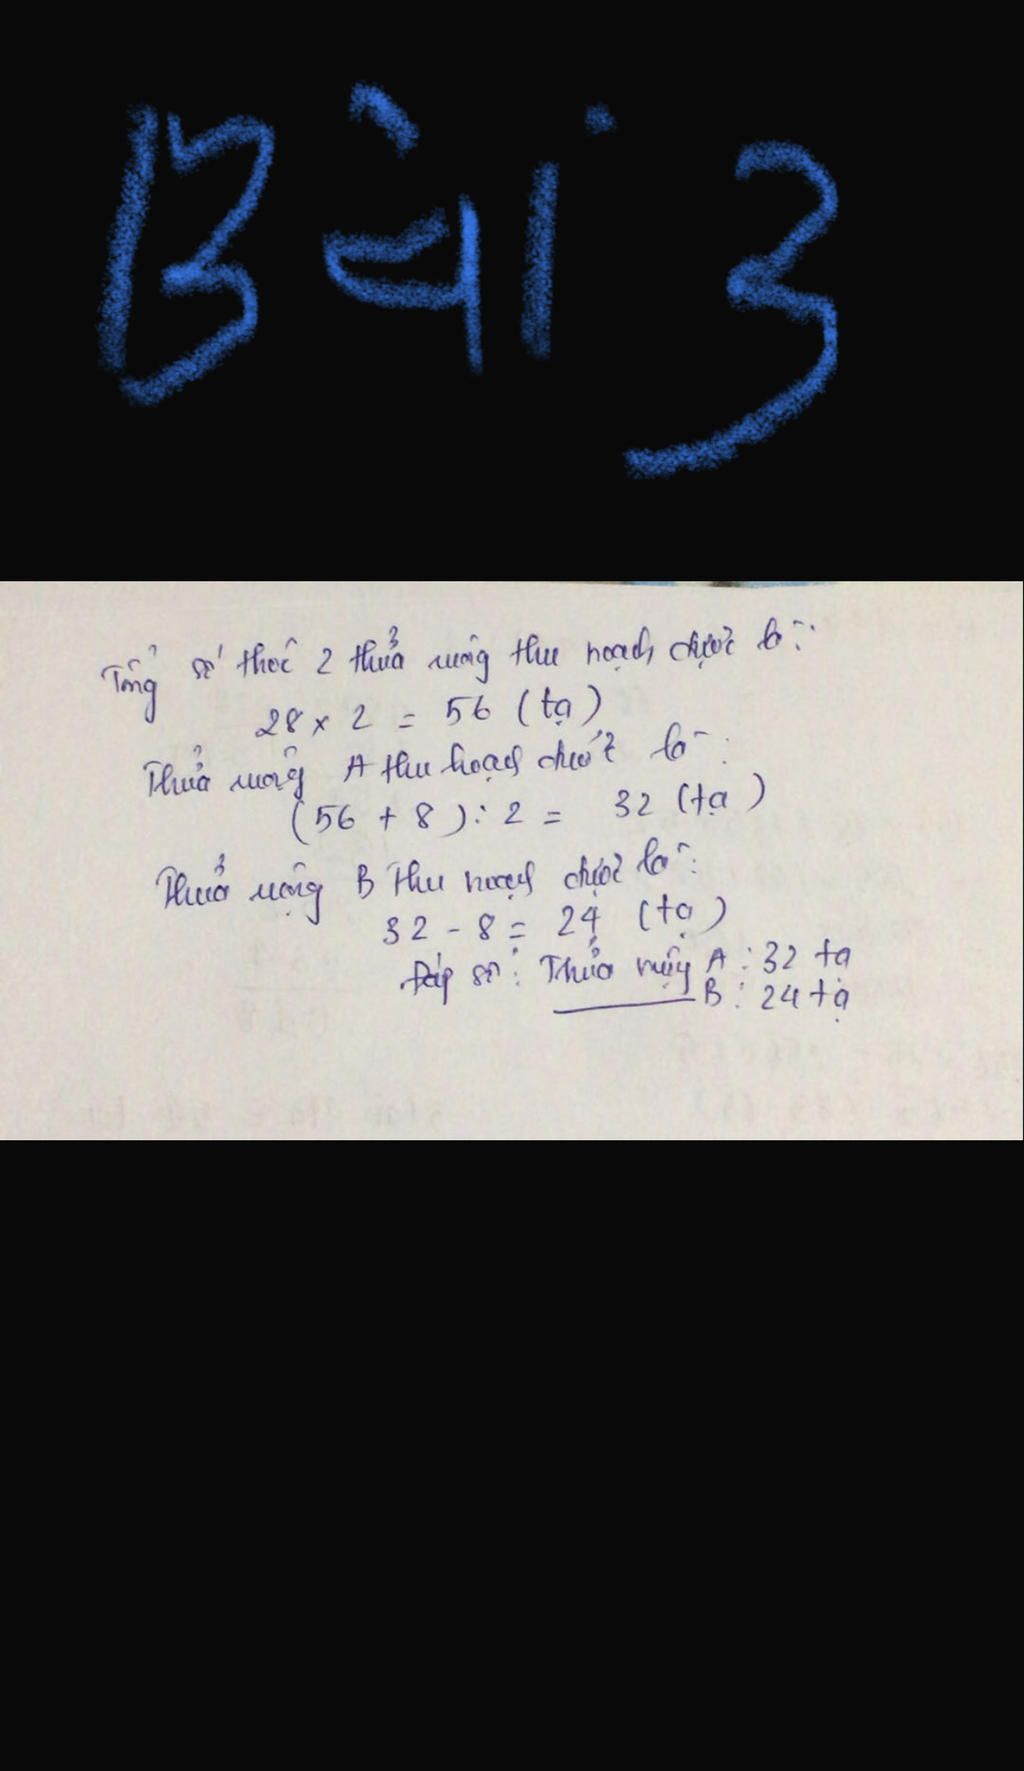 Bài 3
Tổng số thóc 2 thửa ruộng thu hoạch được là:
28 x 2 = 56 (tạ)
Thửa ruộng A thu hoạch được là:
(56 + 8) : 2 = 32 (tạ)
Thửa ruộng B thu hoạch được là:
32 - 8 = 24 (tạ)
Đáp số: Thửa ruộng A : 32 tạ
B : 24 tạ